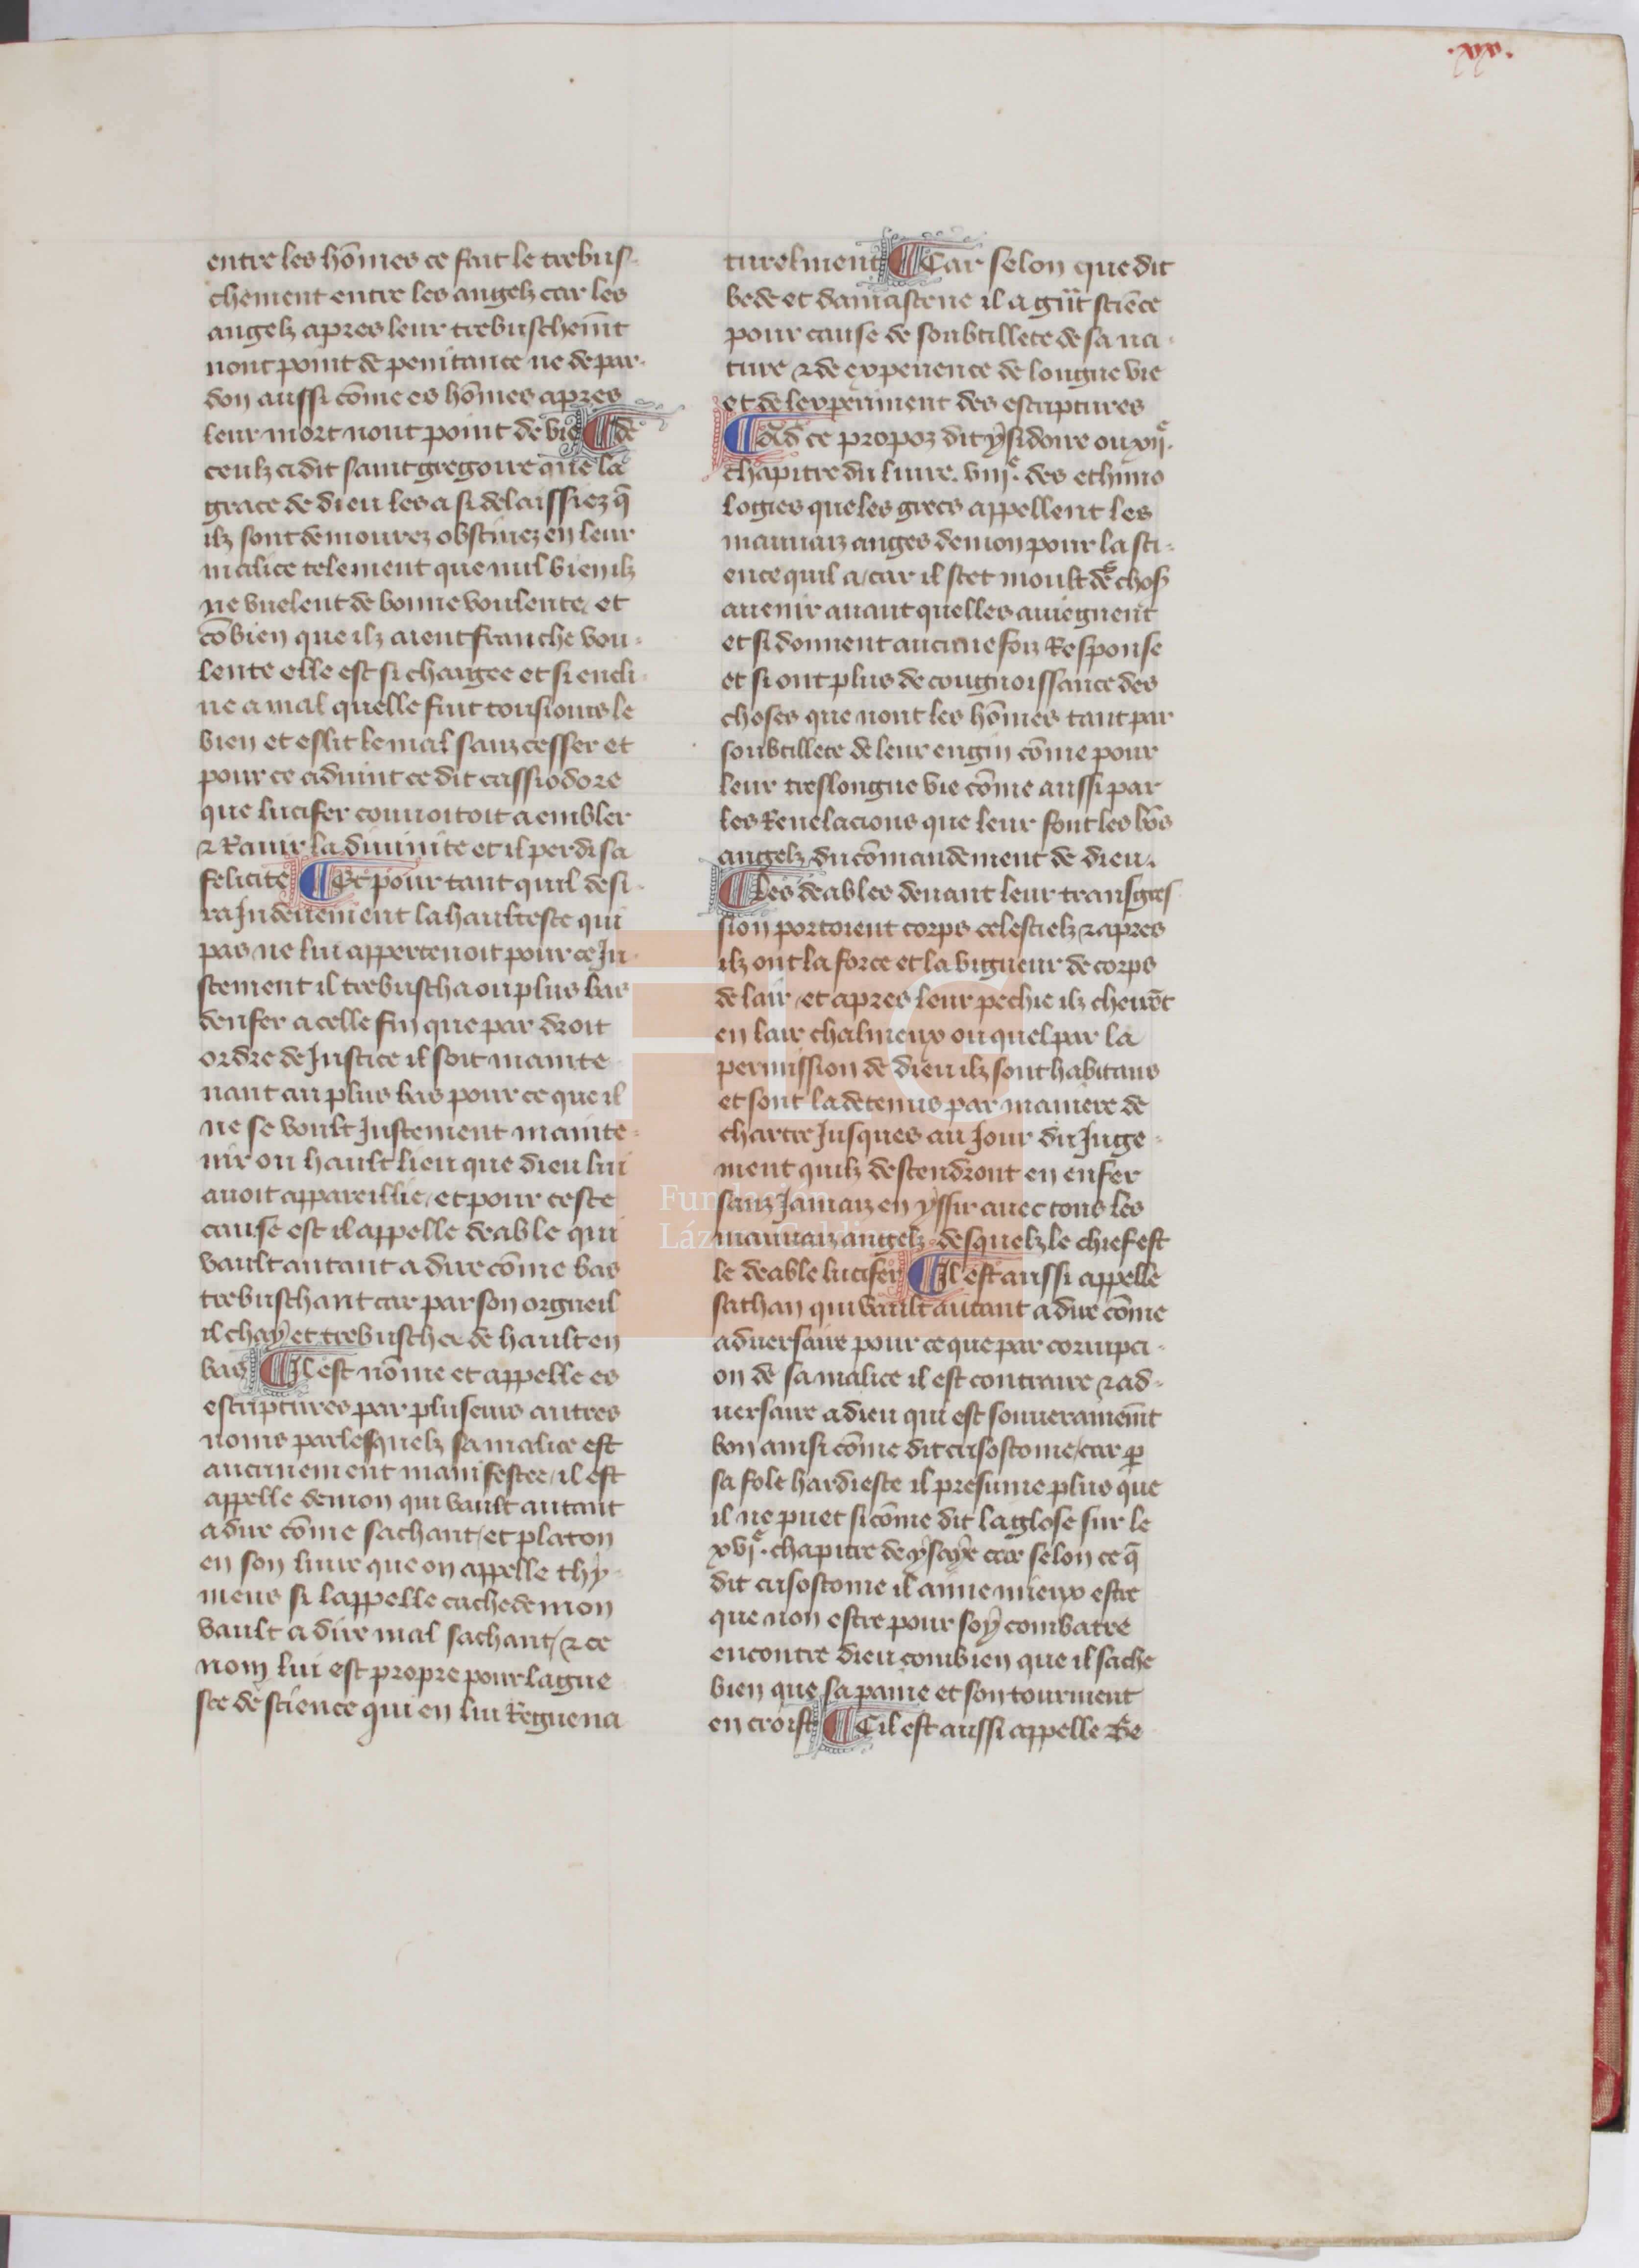 .xx.
entre les hōmes ce fait le trebus-
chement entre les angelz car les
angelz apres leur trebuschemt̄
nont point de penitance ne de par-
don aussi cōme es hōmes apres
leur mort nont point de vie ¶ de
ceulz ci dit saint gregoire que la
grace de dieu les a si delaissiez q̄
ilz sont demourez obstinez en leur
malice telement que nul bien ilz
ne vuelent de bonne voulente / et
cōbien que ilz aient franche vou-
lente elle est si chargee et si encli-
ne a mal quelle fuit tousiours le
bien et eslit le mal sanz cesser et
pour ce aduint ce dit cassiodore
que lucifer couuoitoit a embler
⁊ Rauir la diuinite et il perdi sa
felicite ¶ Et pour tant quil desi-
ra Indeuement la haultesce qui
pas ne lui appertenoit pour ce Iu-
stement il trebuscha ou plus bas
denfer a celle fin que par droit
ordre de Iustice il soit mainte-
nant au plus bas pour ce que il
ne se voult Iustement mainte-
nir ou hault lieu que dieu lui
auoit appareillie / et pour ceste
cause est il appelle deable qui
vault autant a dire cōme bas
trebuschant car par son orgueil
il chaÿ et trebuscha de hault en
bas ¶ Il est nōme et appelle es
escriptures par pluseurs autres
noms par lesquelz sa malice est
aucunement manifestee / il est
appelle demon qui vault autant
a dire cōme sachant / et platon
en son liure que on appelle thy-
meus si lappelle cachedemon
vault a dire mal sachant / ⁊ ce
nom lui est propre pour lague
sce de science qui en lui Regne na
turelment ¶ Car selon que dit
bede et damascene il a gn̄t sciēce
pour cause de soubtillete de sa na-
ture ⁊ de experience de longue vie
et de lexperiment des escriptures
¶ Ad ce propoz dit ysidoire ou xijᵉ.
chapitre du liure. viijᵉ. des ethimo
logies que les grecs appellent les
mauuaiz anges demon pour la sci-
ence quil a / car il scet moult de chos̄
auenir auant quelles auiegnent
et si donnent aucune foiz Response
et si ont plus de congnoissance des
choses que nont les hōmes tant par
soubtillete de leur engin cōme pour
leur treslongue vie cōme aussi par
les Reuelacions que leur font les bōs
angelz du cōmandement de dieu.
¶ Les deables deuant leur transgres
sion portoient corps celestielz ⁊ apres
ilz ont la force et la vigueur de corps
de lair / et apres leur pechie ilz cheurēt
en lair chalineux ou quel par la
permission de dieu ilz sont habitans
et sont la detenus par maniere de
chartre Iusques au Iour du Iuge-
ment quilz descendront en enfer
sanz Iamaiz en yssir auec tous les
mauuaiz angelz desquelz le chief est
le deable lucifer ¶ Il est aussi appelle
sathan qui vault autant a dire cōme
aduersaire pour ce que par corrupci-
on de sa malice il est contraire ⁊ ad-
uersaire a dieu qui est souuerainemt̄
bon ainsi cōme dit crisostome / car ꝑ
sa fole hardiesce il presume plus que
il ne puet si cōme dit la glose sur le
xvjᵉ. chapitre de ysaye car selon ce q̄
dit crisostome il aime mieux estre
que non estre pour soy combatre
encontre dieu combien que il sache
bien que sa paine et son tourment
en croist ¶ Cil est aussi appelle Be
Fundación
Lázaro Galdiano